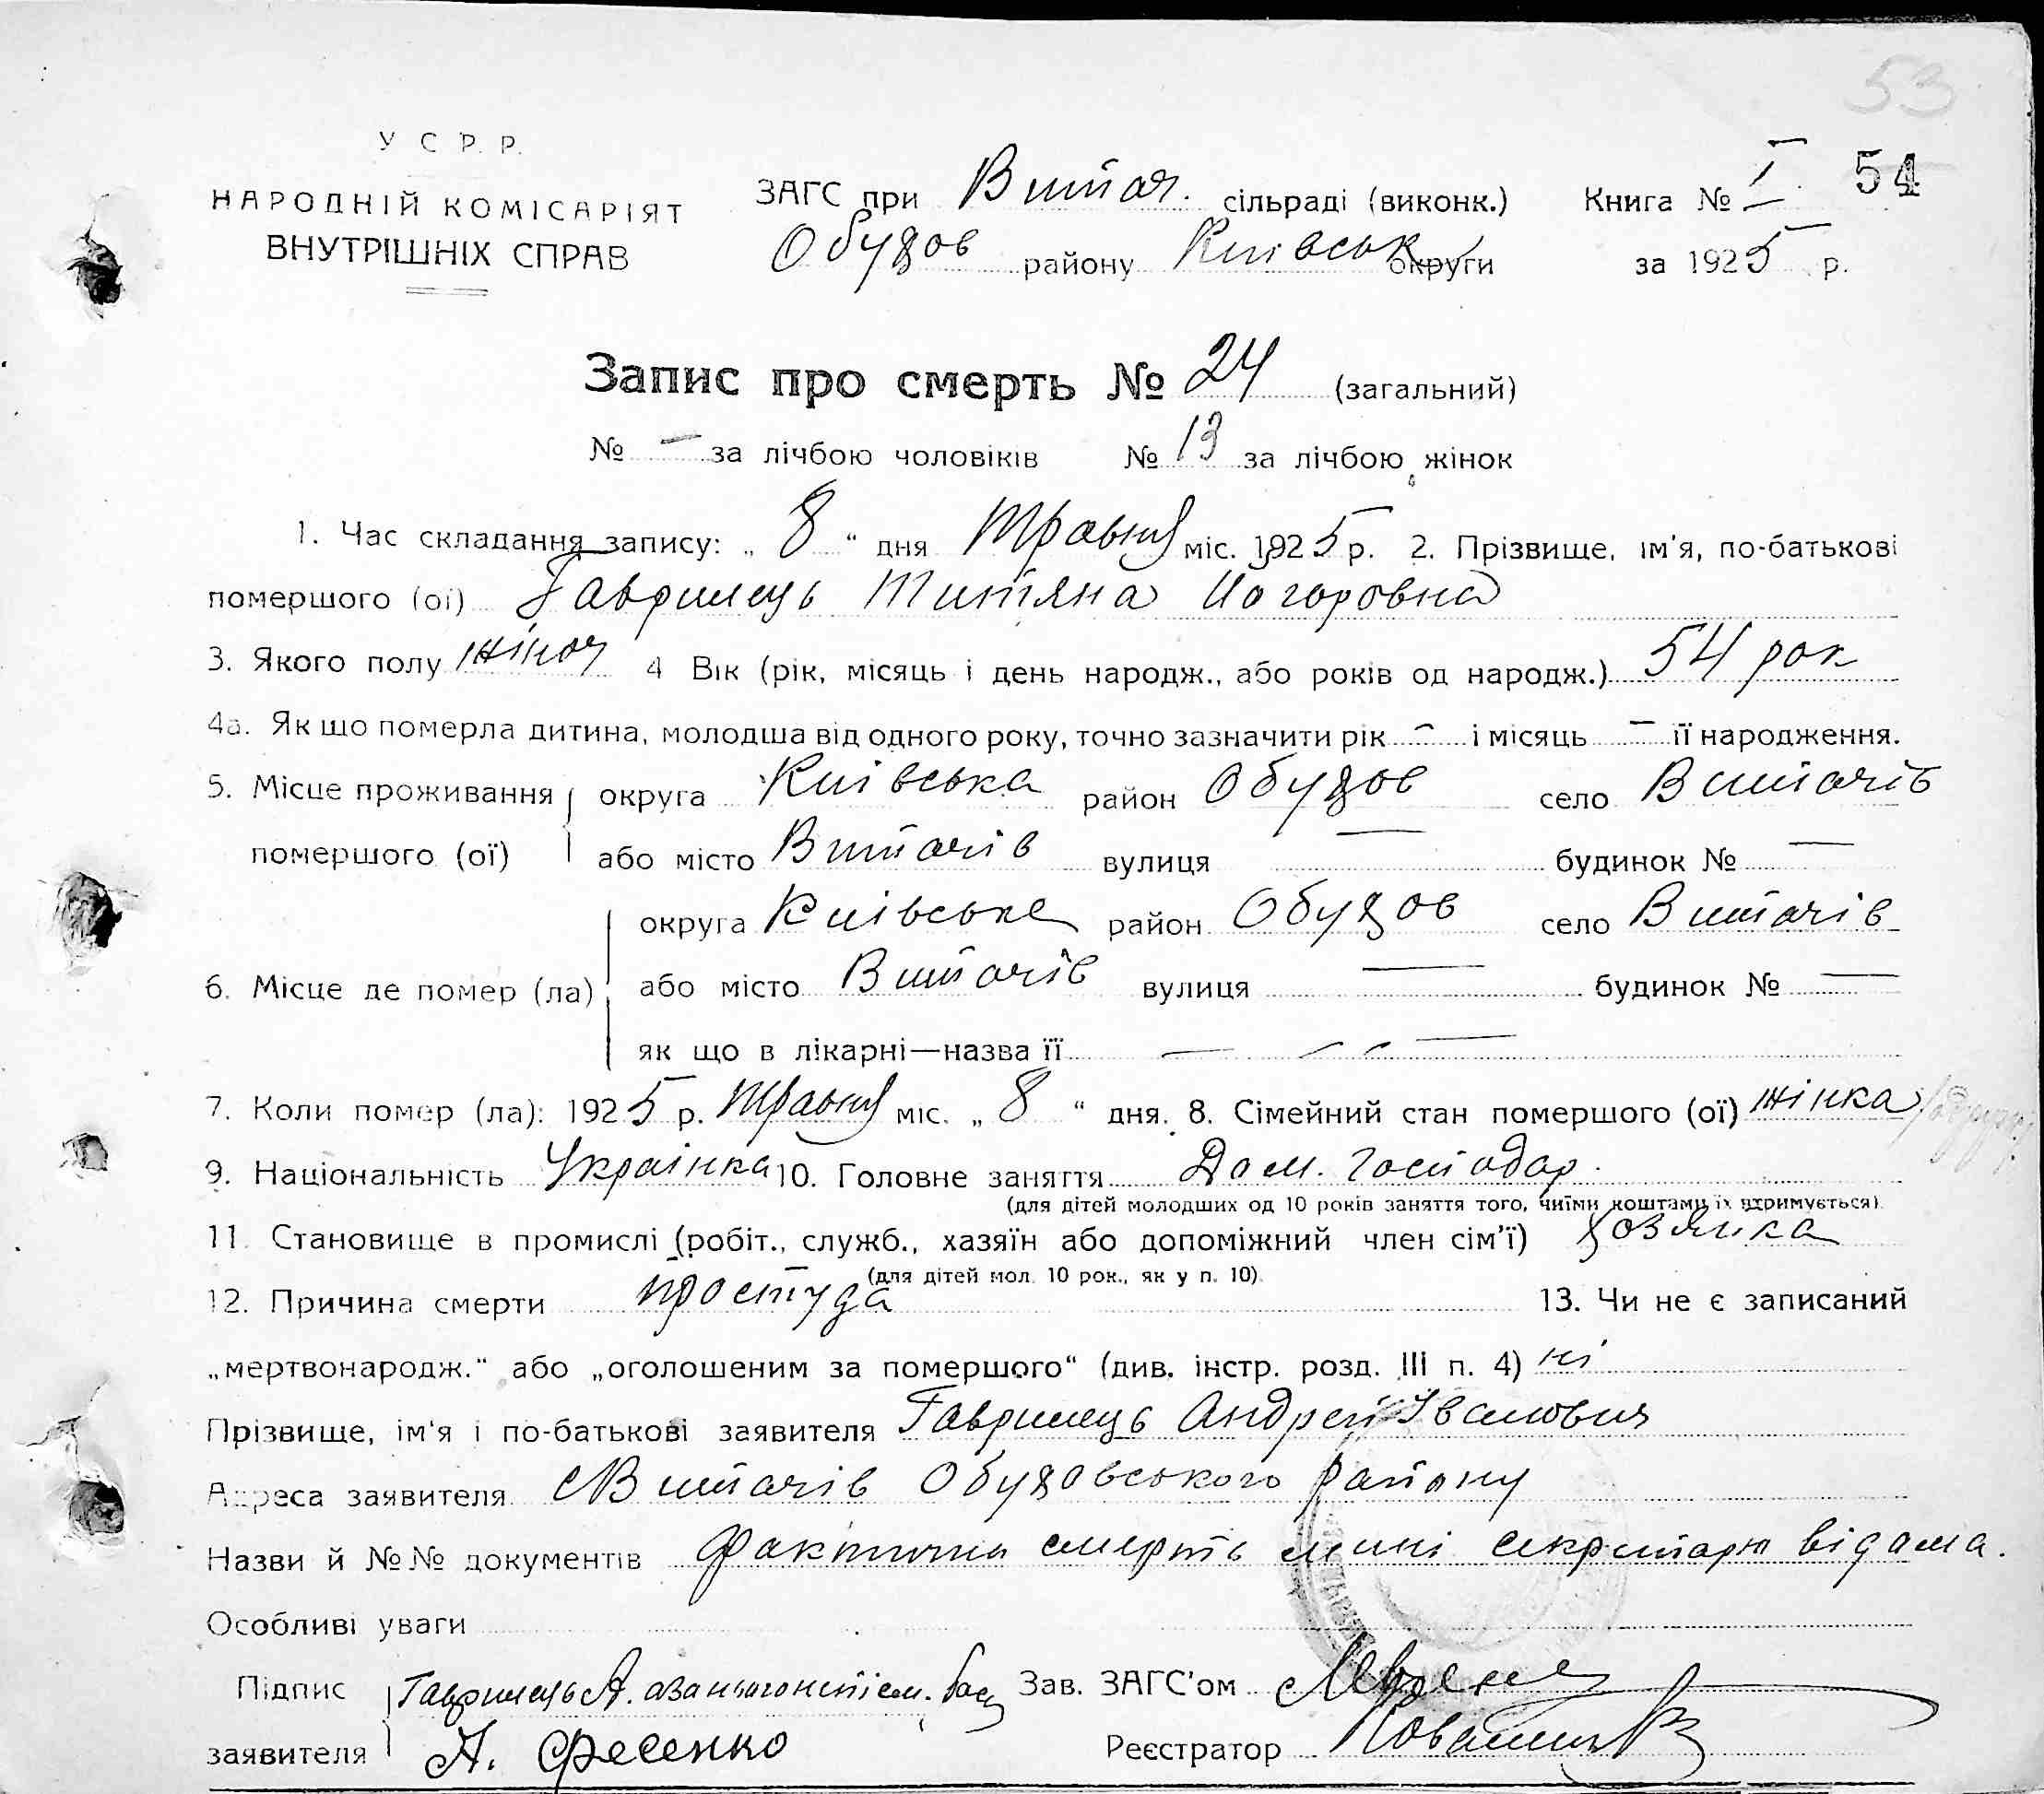 53
У С Р. Р.
НАРОДНІЙ КОМІСАРІЯТ
ВНУТРІШНІХ СПРАВ
ЗАГС при Витач. сільраді (виконк.)
Обухов району Київськ округи
Книга № I
54
за 1925 р.
Запис про смерть № 24 (загальний)
№ — за лічбою чоловіків № 13 за лічбою жінок
1. Час складання запису: „ 8 “ дня Травня міс. 1925 р. 2. Прізвище, ім'я, по-батькові
помершого (ої) Гаврилець Титяна Иогоровна
3. Якого полу жіноч 4 Вік (рік, місяць і день народж., або років од народж.) 54 рок
4а. Як що померла дитина, молодша від одного року, точно зазначити рік — і місяць — її народження.
5. Місце проживання округа Київська район Обухов село Витачів
помершого (ої) або місто Витачів вулиця — будинок № —
округа Київське район Обухов село Витачів
6. Місце де помер (ла) або місто Витачів вулиця — будинок № —
як що в лікарні—назва її — — — —
7. Коли помер (ла): 1925 р. Травня міс. „ 8 “ дня. 8. Сімейний стан помершого (ої) жінка
9. Національність Українка 10. Головне заняття Дом. Господар.
(для дітей молодших од 10 років заняття того, чиїми коштами їх втримується)
11. Становище в промислі (робіт., служб., хазяїн або допоміжний член сім'ї) хозяика
(для дітей мол. 10 рок., як у п. 10).
12. Причина смерти простуда 13. Чи не є записаний
„мертвонародж.“ або „оголошеним за помершого“ (див. інстр. розд. III п. 4) ні
Прізвище, ім'я і по-батькові заявителя Гаврилець Андрей Іванович
Адреса заявителя с Витачів Обуховського району
Назви й №№ документів фактична смерть мині секритарю відома.
Особливі уваги
Підпис Гаврилець А. Зав. ЗАГС'ом
заявителя А. Фесенко Реєстратор